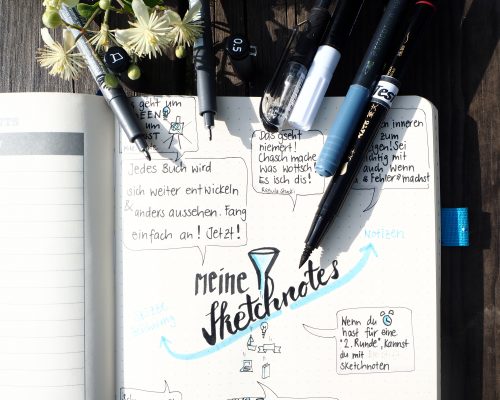 s geht um
EEN
um
ST
Das gseht
niemert!
Chasch mache
was wottsch!
Es isch dis!
inneren
zum
gen! Sei
chtig mit
auch wenn
& Fehler machst
Jedes Buch wird
sich weiter entwickeln
& anders aussehen. Fang
einfach an! Jetzt!
0.5
Yes
Notizen
meine
Sketchnotes
Wenn du
hast für eine
"2. Runde", kannst
du mit
sketchnoten